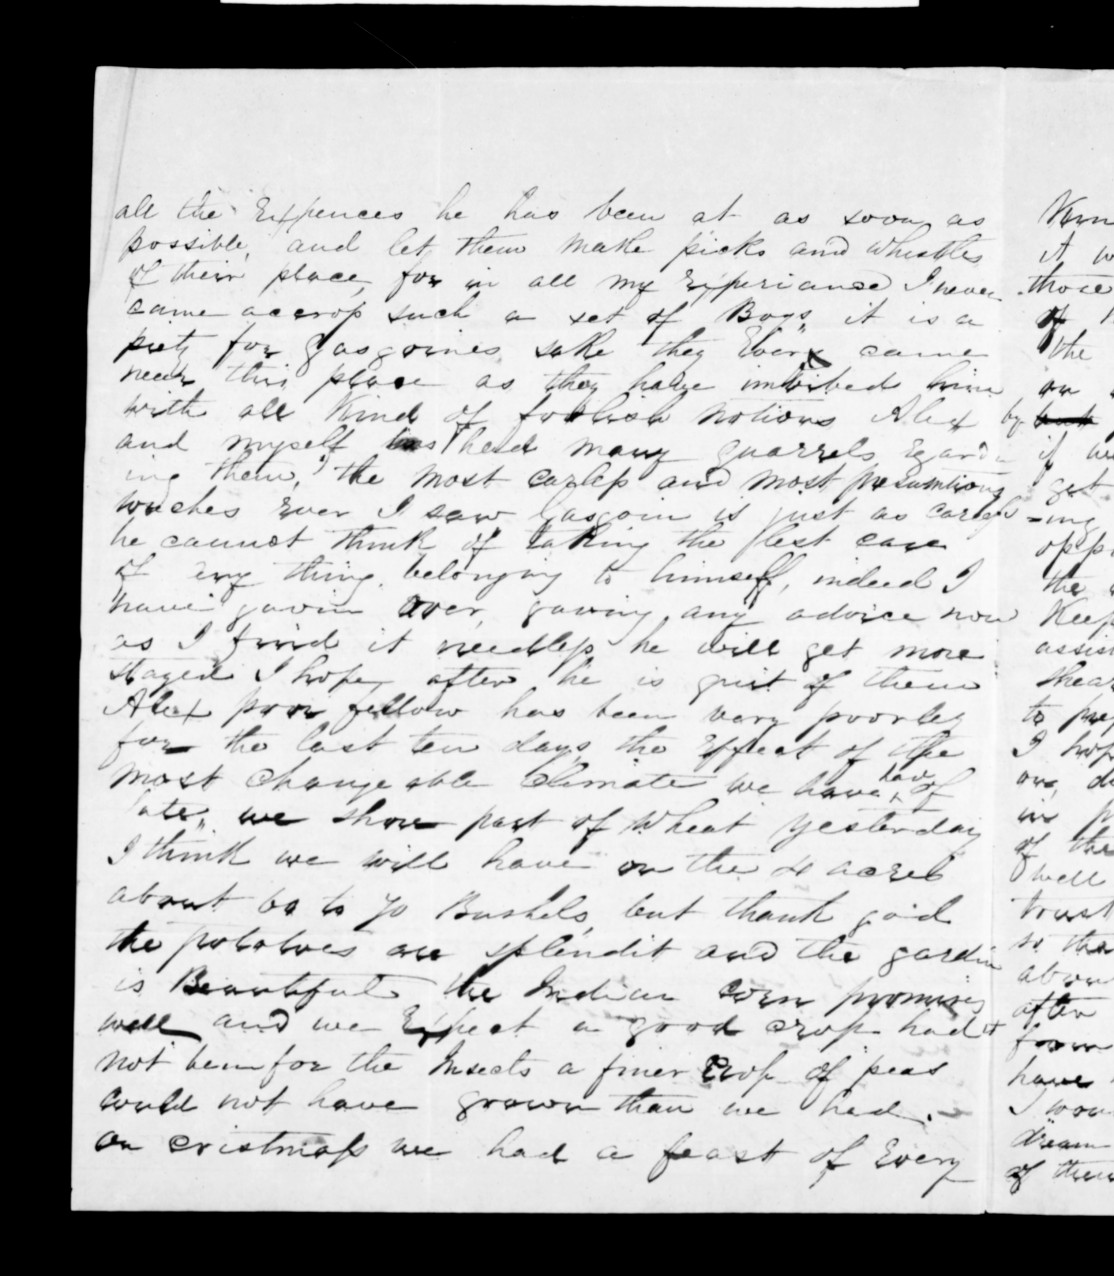 all the Expences he has been at as soon as
possible, and let them make picks and whistles
of their place, for in all my Experiance I never
came accross such a set of Boys, it is a
piety for Gasgoines sake they Ever came
near this place as they have imbibed him
with all Kind of foolish notions Alex
and myself has held many quarrels regard
ing them, the most carless and most presumtious
wretches Ever I saw Gasgoin is just as carless
he cannot think of taking the lest care
of eny thing belonging to himself, indeed I
have gavin over, gaving any advice now
as I find it needless he will get more
stayed I hope after he is quit of them
Alex poor fellow has been very poorley
for the last ten days, the Effect of the
most changeable Climate we have hav of
late, we shore part of wheat yesterday
I think we will have on the 4 acres
about 60 to 70 Bushels, but thank god
the potatoes are splendit and the gardin
is Beautiful the Indian corn promising
well and we Expect a good crop had it
not been for the Insects a finer Crop of peas
could not have grown than we had.
on cristmass we had a feast of Every
those
the
by
get
=ing
the
Keep
I hop
of the
well
trust
after
have
dream
of them